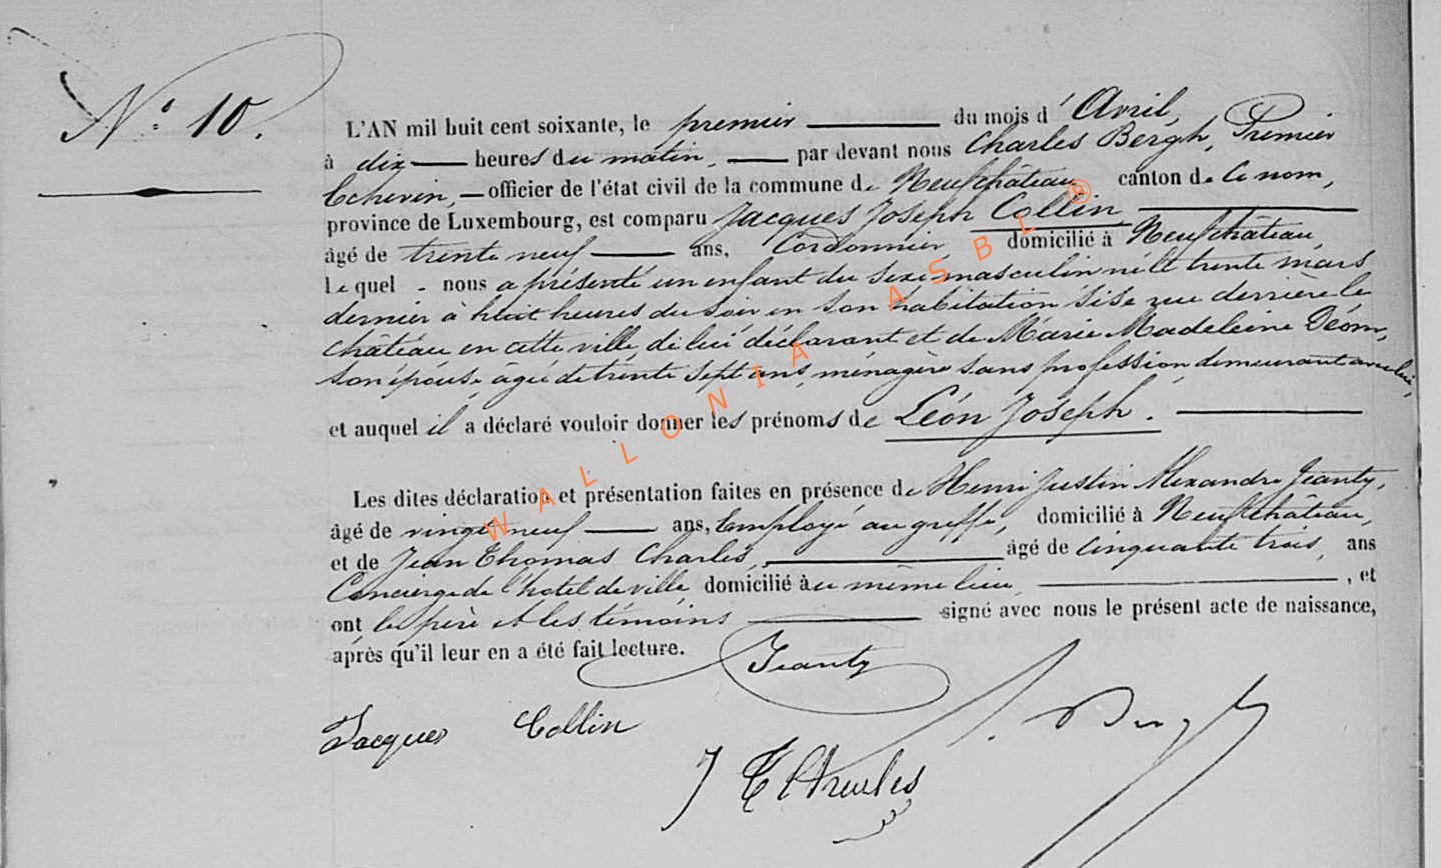 N° 10.
L'AN mil huit cent soixante, le premier du mois d'Avril,
à dix heures du matin, par devant nous Charles Bergh, Premier
Echevin, officier de l'état civil de la commune de Neufchâteau, canton de ce nom,
province de Luxembourg, est comparu Jacques Joseph Collin
âgé de trente neuf ans, Cordonnier domicilié à Neufchâteau,
lequel nous a présenté un enfant du sexe masculin né le trente mars
dernier à huit heures du soir en son habitation sise rue derrière le
château en cette ville, de lui déclarant et de Marie Madeleine Déom,
son épouse âgée de trente sept ans, ménagère sans profession, demeurant avec lui,
et auquel il a déclaré vouloir donner les prénoms de Léon Joseph.
Les dites déclaration et présentation faites en présence de Henri Justin Alexandre Jeanty,
âgé de vingt neuf ans, Employé au greffe, domicilié à Neufchâteau,
et de Jean Thomas Charles, âgé de cinquante trois, ans
Concierge de l'hotel de ville domicilié au même lieu, , et
ont le père et les témoins signé avec nous le présent acte de naissance,
après qu'il leur en a été fait lecture.
Jeanty
Jacques Collin
Bergh
J T Charles
WALLONIA ASBL ®